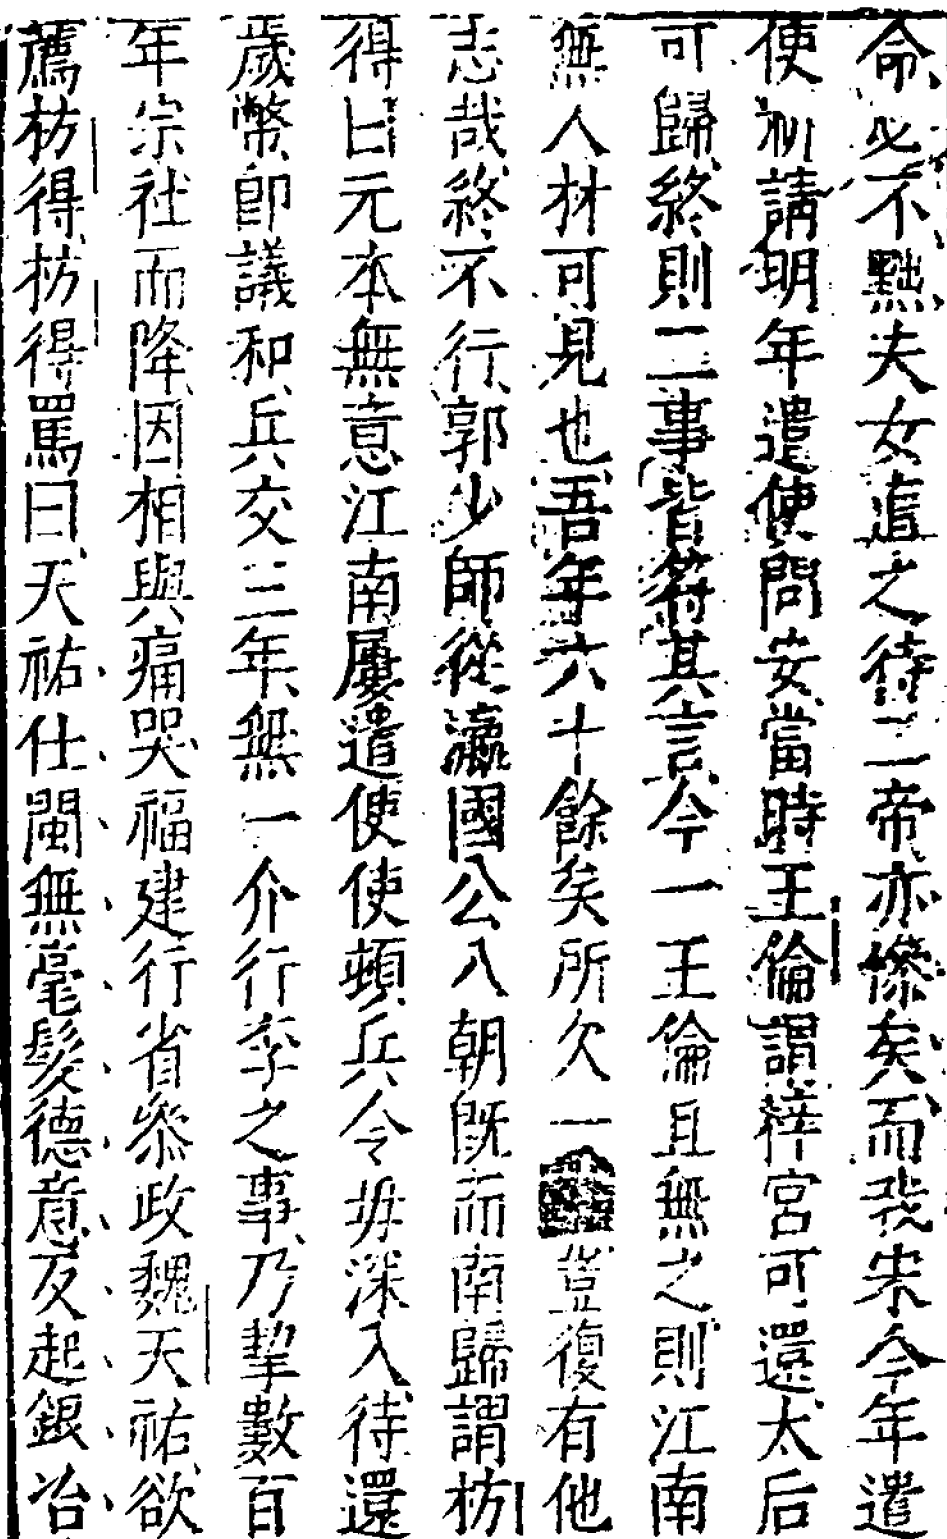 命必不黜夫女追之待二帝亦慘矣而我宋今年遣
使祈請明年遣使問安當時王倫謂梓宮可還太后
可歸終則二事皆符其言今一王倫且無之則江南
無人材可見也吾年六十餘矣所欠一豈復有他
志哉終不行郭少師從瀛國公入朝旣而南歸謂枋
得曰元本無意江南屢遣使使頓兵令毋深入待還
歲幣即議和兵交三年無一介行李之事乃挈數百
年宗社而降因相與痛哭福建行省參政魏天祐欲
薦枋得枋得罵曰天祐仕閩無毫髮德意反起銀冶